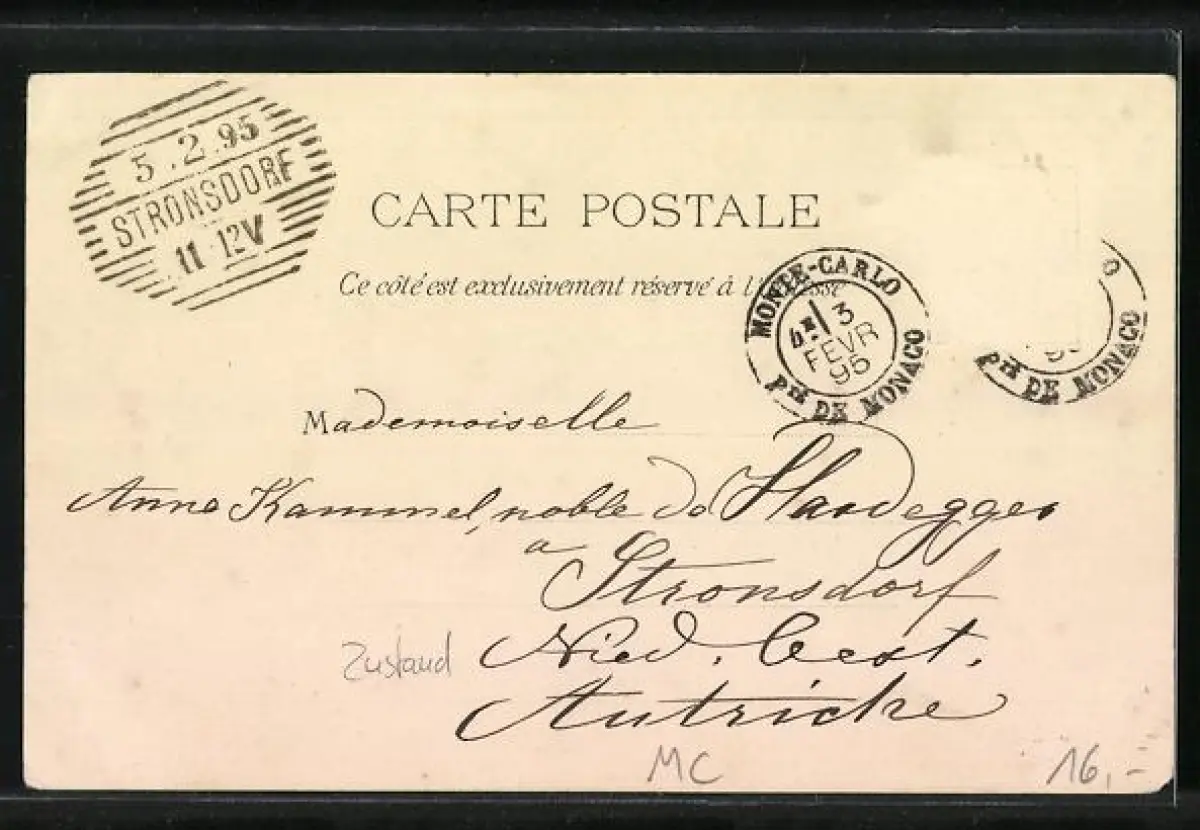 5.2.95
STRONSDORF
11-12V
CARTE POSTALE
Ce côté est exclusivement réservé à l'
MONTE-CARLO
3
FEVR
95
Pté DE MONACO
O
Pté DE MONACO
Mademoiselle
Anna Kammel, noble de Hardegger
a
Stronsdorf
Nied. Oest.
Autriche
Zustand
MC
16,-